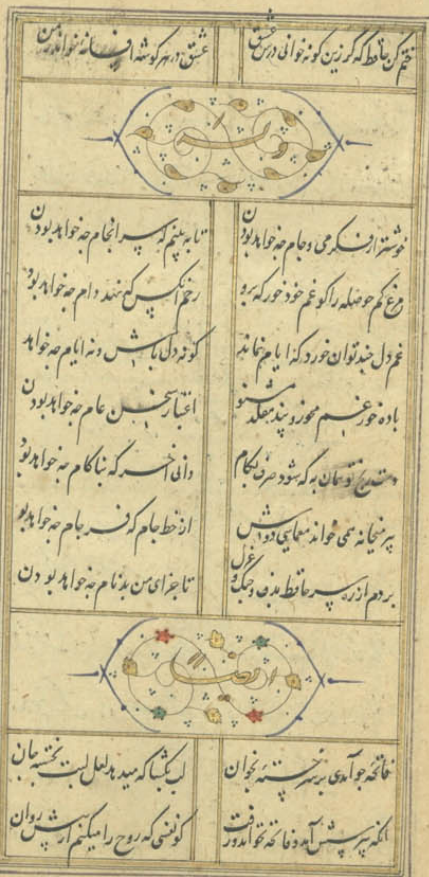 ختم کن حافظ که گر زین گونه خوانی درس عشق عشق در هر گوشه افسانه خواند ز من
وله
خوشتر از فکر می و جام چه خواهد بودن تا به بینم که سرانجام چه خواهد بودن
مرغ کم حوصله را گو غم خود خور که برو رحم آنکس که نهد دام چه خواهد بود
غم دل چند توان خورد که ایام نماند گو نه دل باش و نه ایام چه خواهد
باده خور غم مخور و پند مقلد مشنو اعتبار سخن عام چه خواهد بودن
دست رنج تو همان به که شود صرف بکام دانی آخر که بناکام چه خواهد بود
پیر میخانه همی خواند معمایی دوش از خط جام که فرجام چه خواهد بو
بردم از ره سر حافظ بدف و چنگ و غزل تا جزای من بدنام چه خواهد بودن
ایضا
فاتحه چو آمدی بر سر خسته بخوان لب بگشا که میدهد لعل لبت بخسته جان
آنکه بپرسش آمد و فاتحه خواند و رفت کو نفسی که روح را میکنم از پیش روان